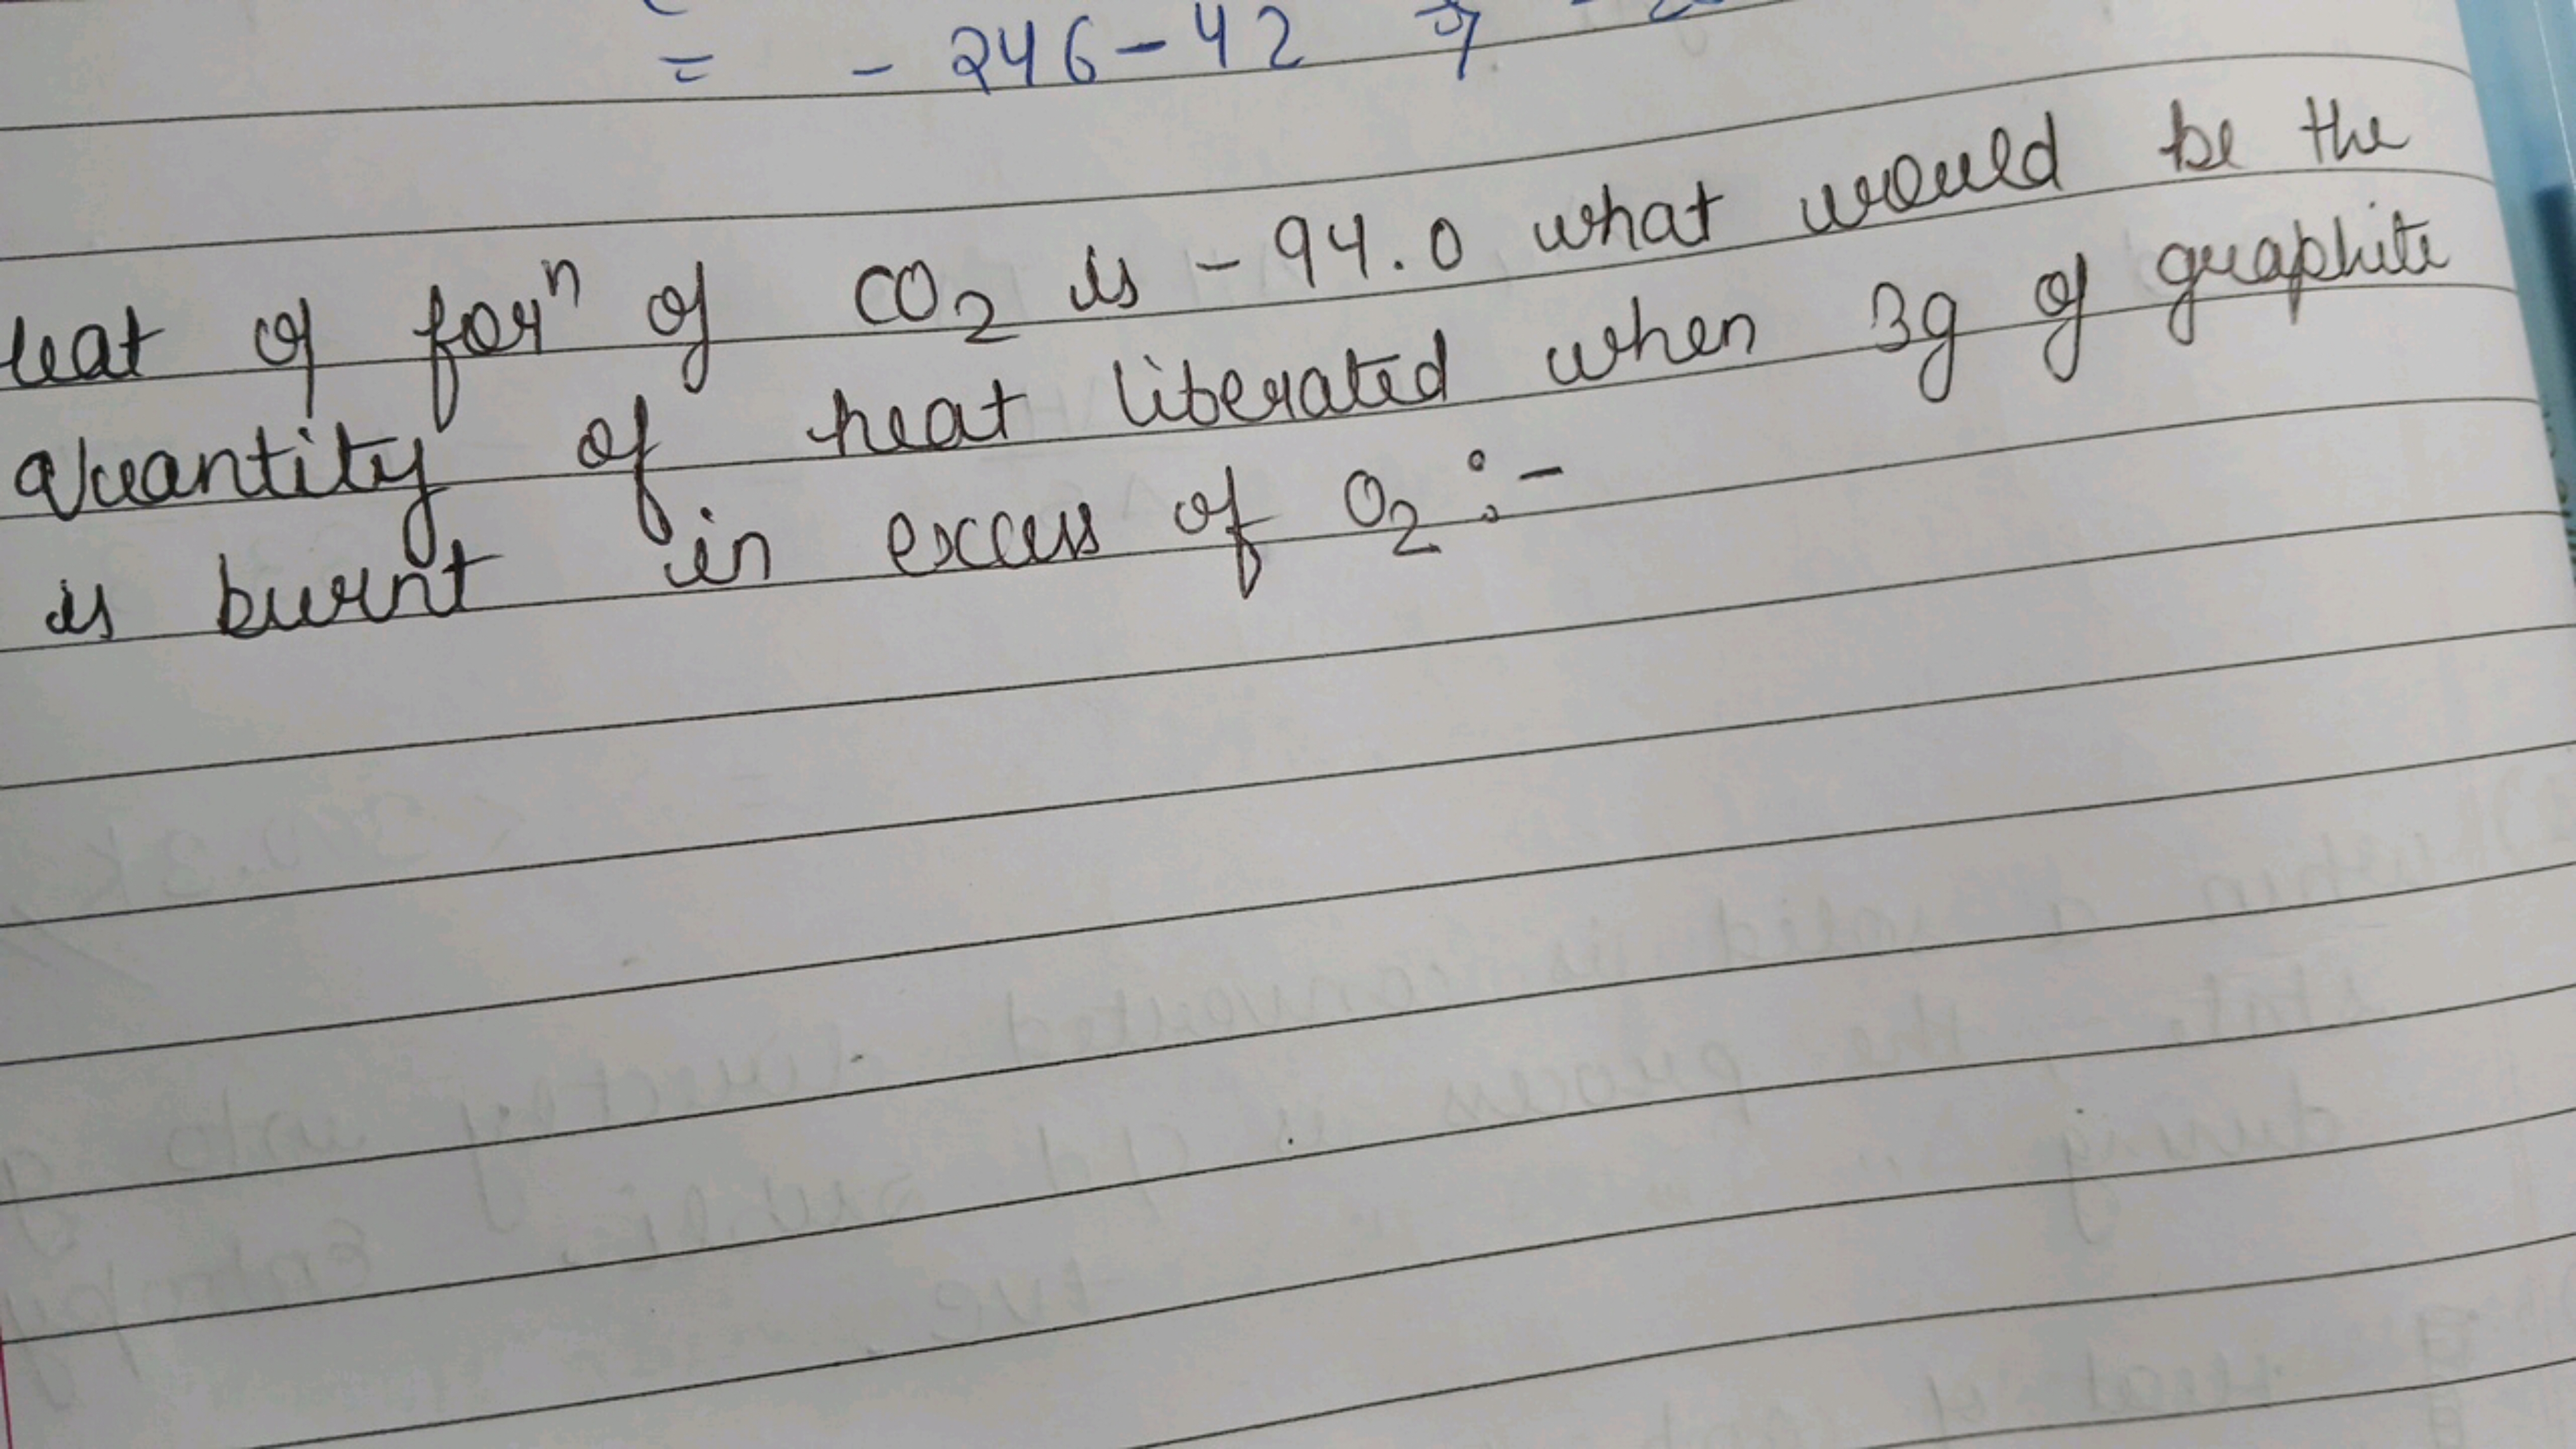 = - 246-42 ⇒
heat of forⁿ of CO₂ is - 94.0 what would be the
quantity of heat liberated when 3g of graphite
is burnt in excess of O₂ :-